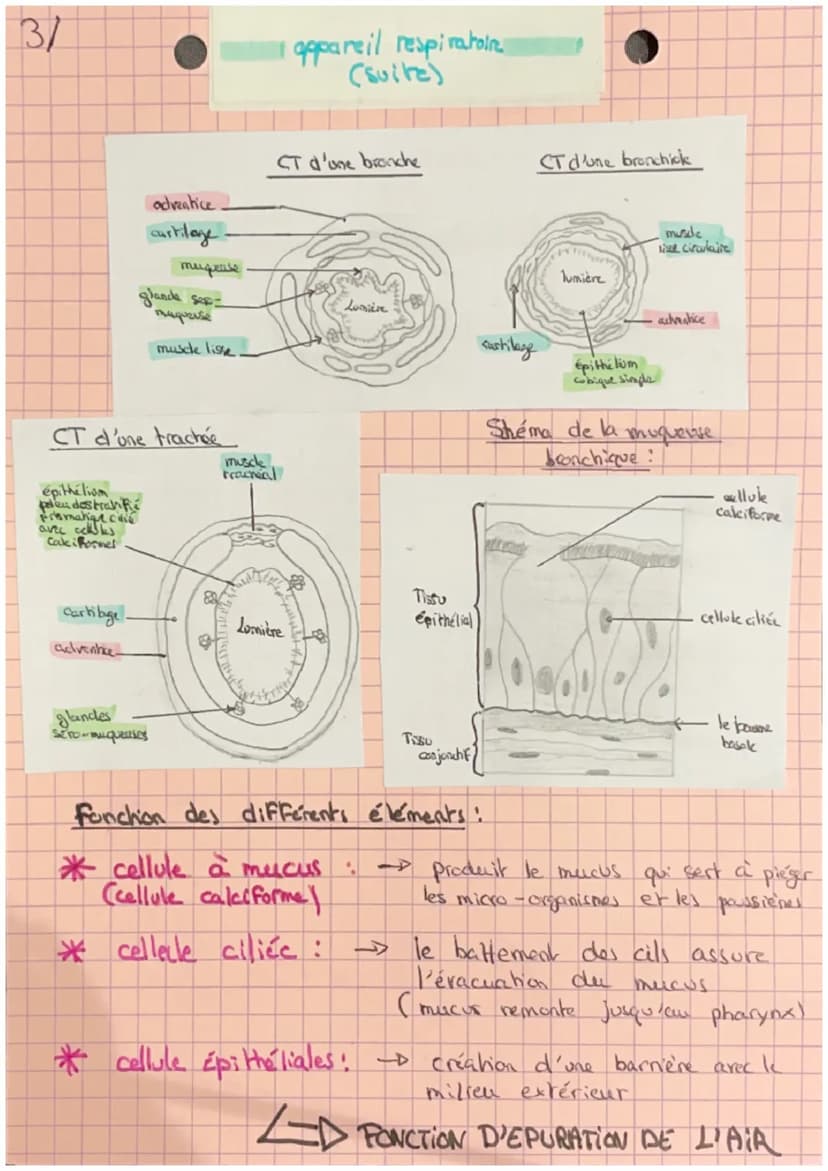 3/
appareil respiratoire
(suite)
CT d'une bronche
CT d'une bronchiole
adventice
cartilage
muqueuse
glande sero-
muqueuse
muscle lisse
Lumière
muscle
lisse circulaire
lumière
adventice
cartilage
épithélium
cubique simple
CT d'une trachée
muscle
trachéal
épithélium
pseudostratifié
prismatique cilié
avec cellules
caliciformes
cartilage
adventice
Lumière
glandes
séro-muqueuses
Shéma de la muqueuse
bronchique :
cellule
calciforme
Tissu
épithélial
cellule ciliée
Tissu
conjonctif
le
basale
Fonction des différents éléments :
* cellule à mucus : → produit le mucus qui sert à piéger
(cellule calciforme) les micro-organismes et les poussières
* cellule ciliée : → le battement des cils assure
l'évacuation du mucus
(mucus remonte jusqu'au pharynx)
* cellule épithéliales : → création d'une barrière avec le
milieu extérieur
⇒ FONCTION D'EPURATION DE L'AIR